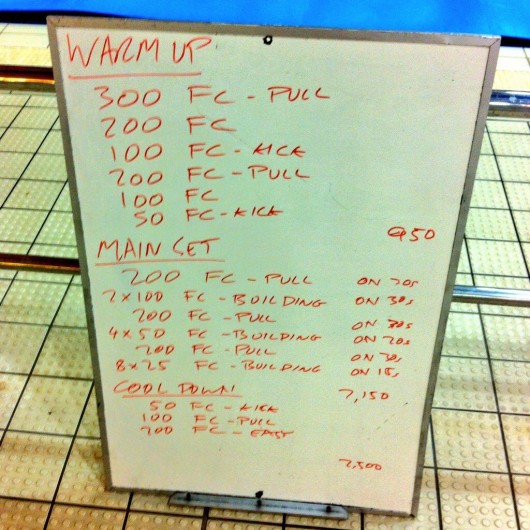 WARM UP
300 FC - PULL
200 FC
100 FC - KICK
200 FC - PULL
100 FC
50 FC - KICK
950
MAIN SET
200 FC - PULL ON 20s
2x100 FC - BUILDING ON 30s
200 FC - PULL ON 30s
4x50 FC - BUILDING ON 20s
200 FC - PULL ON 20s
8x25 FC - BUILDING ON 15s
COOL DOWN 2,150
50 FC - KICK
100 FC - PULL
200 FC - EASY
2,500